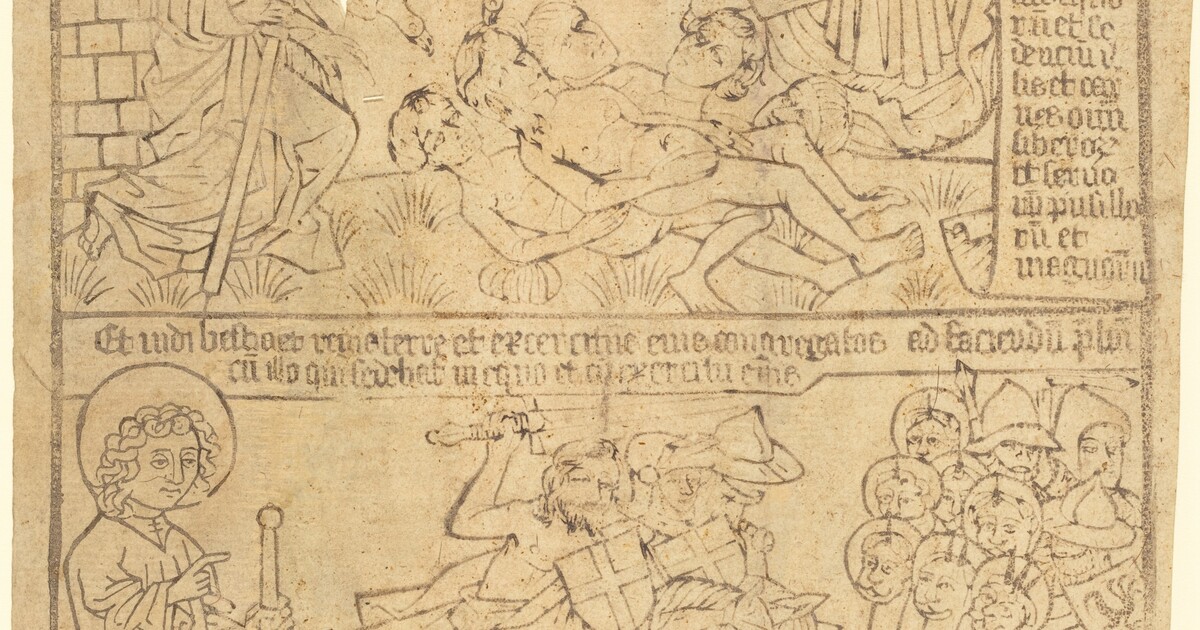 rū et se
denciū i
liberoꝝ
et seruo
rū pusillo
rū et
magnorū
Et uidi bestia et reges terre et exercitus eius congregatos ad faciendū pliū
cū illo qui sedebat in equo et cū exercitu eius